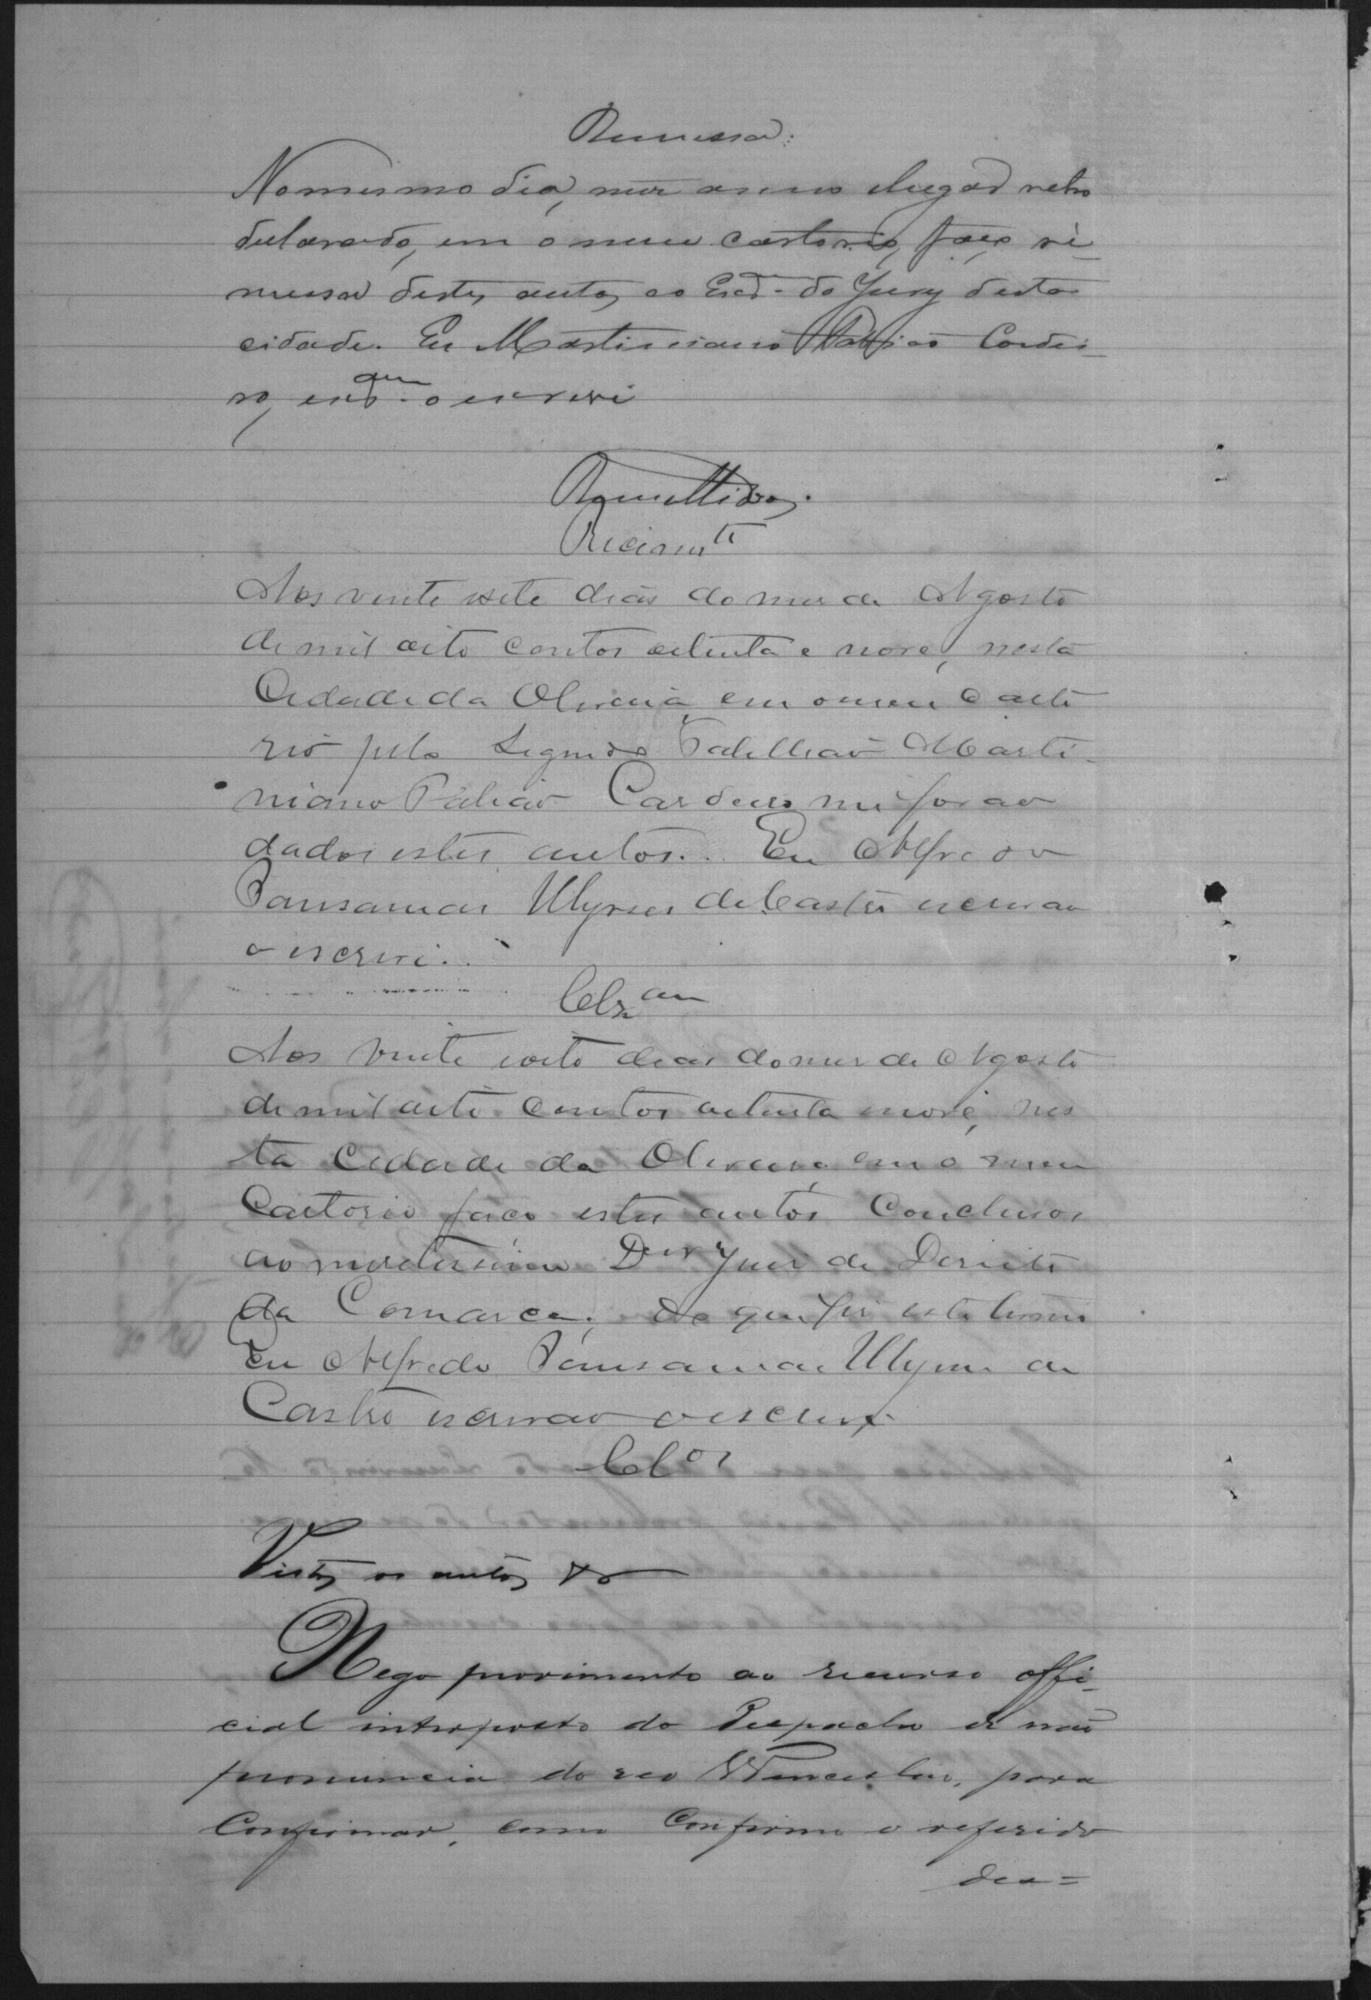 Remessa:
No mesmo dia, mez anno e lugar retro
declarado, em o meu cartorio, faço re-
messa destes autos ao Escam do Jury desta
cidade. Eu Martiniano Patricio Cordei-
ro, escam o escrevi
Remettidos.
Recebimto
Aos vinte esete dias do mez de Agosto
de mil oito centos setenta e nove, nesta
Cidade da Oliveira em o meu Carto
rio pelo Segundo Tabelliaõ Marti-
niano Cordeiro me foraõ
dados estes autos. Eu Alfredo
Pansamar Ulysses de Castro escrivaõ
o escrevi.
Clzam
Aos vinte eoito dias do mez de Agosto
de mil oito centos setenta enove, nes
ta Cidade da Oliveira, em o meu
Cartorio faço estes autos Conclusos
ao meretissimo Dor Juiz de Direito
da Comarca; do que fiz este termo
Eu Alfredo Pansamar Ulysses de
Castro escrivaõ o escrevi.
Clos
Vistos os autos &a
Nego provimento ao recurso offi-
cial interposto do Despacho de naõ
pronuncia do reo Wenceslau, para
Confirmar, como Confirmo o referido
des=